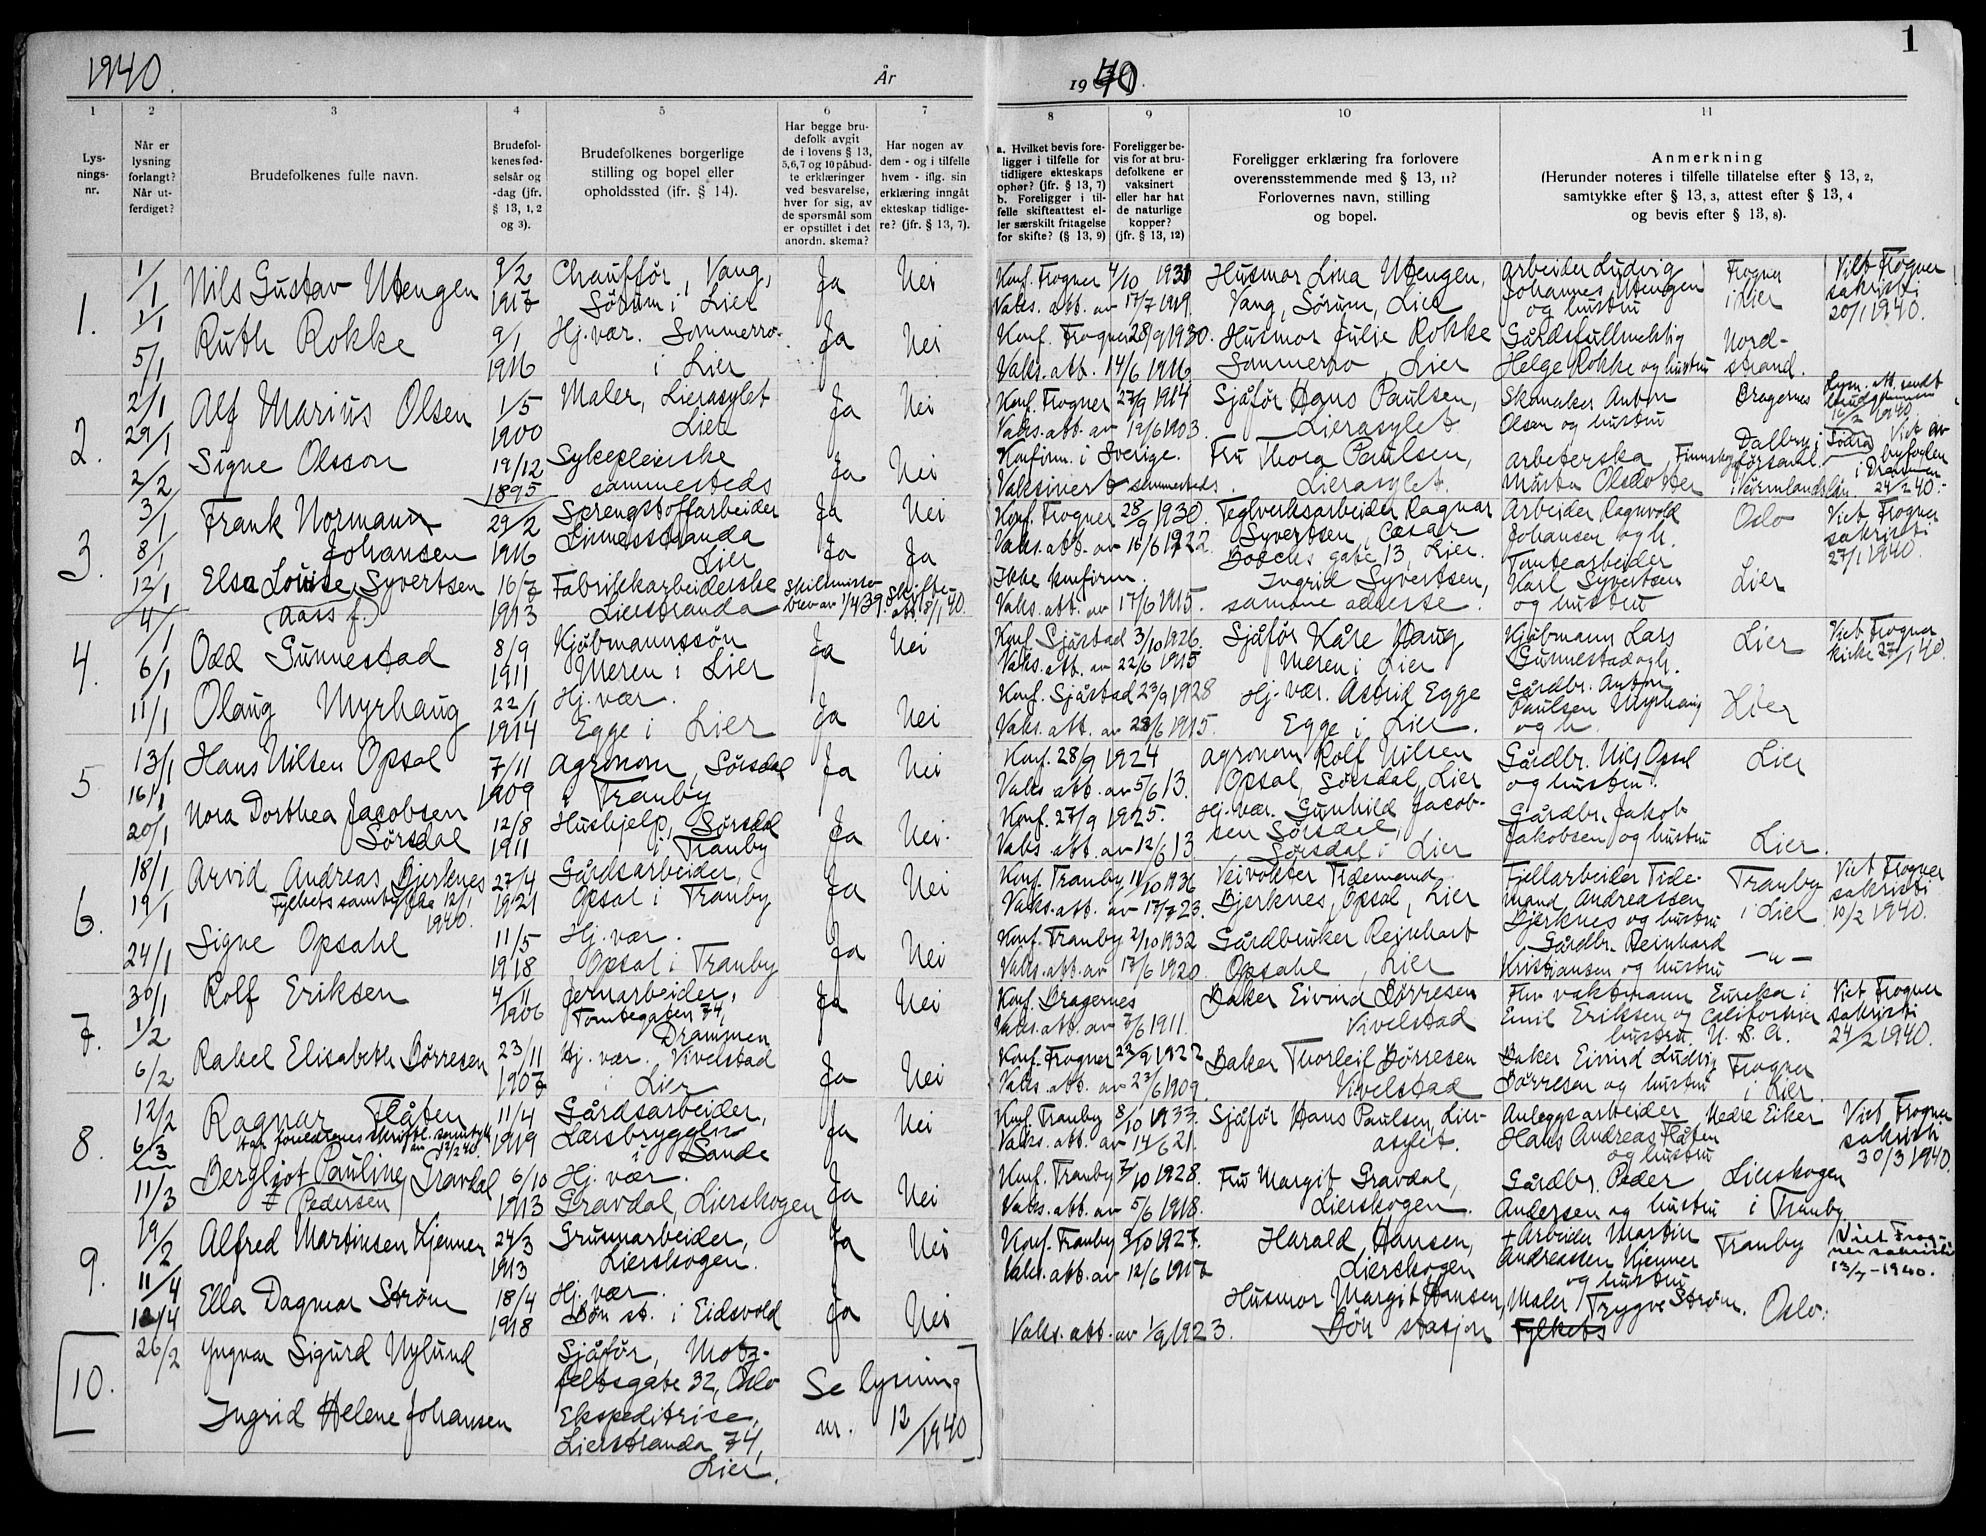 1940.
År
1940.
1
1
2
3
4
5
6
7
8
9
10
11
Lys-
nings-
nr.
Når er
lysning
forlangt?
Når ut-
ferdiget?
Brudefolkenes fulle navn.
Brudefol-
kenes fød-
selsår og
-dag (jfr.
§ 13, 1, 2
og 3).
Brudefolkenes borgerlige
stilling og bopel eller
opholdssted (jfr. § 14).
Har begge bru-
defolk avgit
de i lovens § 13,
5,6,7 og 10 påbud-
te erklæringer
ved besvarelse,
hver for sig, av
de spørsmål som
er opstillet i det
anordn. skema?
Har nogen av
dem - og i tilfelle
hvem - iflg. sin
erklæring inngått
ekteskap tidlige-
re? (jfr. § 13, 7).
a. Hvilket bevis fore-
ligger i tilfelle for
tidligere ekteskaps
ophør? (jfr. § 13, 7)
b. Foreligger i til-
felle skifteattest el-
ler særskilt fritagelse
for skifte? (§ 13, 9)
Foreligger be-
vis for at bru-
defolkene er
vaksinert
eller har hat
de naturlige
kopper?
(jfr. § 13, 12)
Foreligger erklæring fra forlovere
overensstemmende med § 13, 11?
Forlovernes navn, stilling
og bopel.
Anmerkning
(Herunder noteres i tilfelle tillatelse efter § 13, 2,
samtykke efter § 13, 3, attest efter § 13, 4
og bevis efter § 13, 8).
1.
1/1
1/1
5/1
Nils Gustav Utengen
9/2
1917
Chauffør, Vang,
Sørum i Lier
Ja
Nei
Konf. Frogner 4/10 1931
Vaks. att. av 17/7 1919.
Husmor Lina Utengen,
Vang, Sørum, Lier
Arbeider Ludvig
Johannes Utengen
og hustru
Frogner
i Lier
Viet Frogner
sakristi
20/1 1940.
Ruth Rokke
9/1
1916
Hj. vær. Sommerro
i Lier
Ja
Nei
Konf. Frogner 28/9 1930.
Vaks. att. 14/6 1916
Husmor Julie Rokke
Sommerro, Lier
Gårdsfullmektig
Helge Rokke og hustru
Nord-
strand.
2.
2/1
29/1
2/2
Alf Marius Olsen
1/5
1900
Maler, Lierasylet
Lier
Ja
Nei
Konf. Frogner 27/9 1914
Vaks. att. av 19/6 1903.
Sjåfør Hans Paulsen,
Lierasylet
Skomaker Anton
Olsen og hustru
Bragernes
Lysn. att. sendt
brudgommen
16/2 1940
Signe Olsson
19/12
1895
Sykepleierske
sammesteds
Ja
Nei
Konfirm. i Sverige.
Vaksinert sammesteds.
Fru Thora Paulsen,
Lierasylet.
Arbeterska
Märta Olsdotter
Dalby i Södra
Finnskoga församl.
i Värmlands län
Viet av
byfogden
i Drammen
24/2 40.-
3.
3/1
8/1
12/1
Frank Normann
Johansen
29/2
1916
Sprengstoffarbeider
Linnesstranda
Lier
Ja
Nei
Konf. Frogner 28/9 1930.
Vaks. att. av 16/6 1922.
Teglverksarbeider Ragnar
Syvertsen, Cæsar
Boecks gate 13, Lier.
Arbeider Ragnvold
Johansen og h.
Oslo
Viet Frogner
sakristi
27/1 1940.
Elsa Louise Syvertsen
Aass f.
16/7
1913
Fabrikkarbeiderske
Lierstranda
Ja
Ja
Skilsmisse
brev av 1/4 39.
Skifte
att. 8/1 40.
Ikke konfirm.
Vaks. att. av 17/6 1915.
Ingrid Syvertsen,
samme adresse.
Tomtearbeider
Karl Syvertsen
og hustru
Lier
4.
4/1
6/1
11/1
Odd Gunnestad
8/9
1911
Kjøbmannssøn
Meren i Lier
Ja
Nei
Konf. Sjåstad 3/10 1926
Vaks. att. av 22/6 1915
Sjåfør Kåre Haug
Meren i Lier
Kjøbmann Lars
Gunnestad og h.
Lier
Viet Frogner
kirke 27/1 40.
Olaug Myrhaug
22/1
1914
Hj. vær.
Egge i Lier
Ja
Nei
Konf. Sjåstad 23/9 1928
Vaks. att. av 28/6 1915.
Hj. vær. Astrid Egge
Egge i Lier.
Gårdbr. Anton
Paulsen Myrhaug
og h.
Lier
5.
13/1
16/1
20/1
Hans Nilsen Opsal
7/11
1909
Agronom, Sørsdal
i Tranby
Ja
Nei
Konf. 28/9 1924
Vaks att. av 5/6 13.
Agronom Rolf Nilsen
Opsal, Sørsdal, Lier
Gårdbr. Nils Opsal
og hustru.
Lier
Nora Dorthea Jacobsen
Sørsdal
12/8
1911
Hushjelp, Sørsdal
i Tranby
Ja
Nei.
Konf. 27/9 1925.
Vaks. att. av 12/6 13
Hj. vær. Gunhild Jacob-
sen Sørsdal,
Sørsdal i Lier
Gårdbr. Jakob
Jakobsen og hustru
Lier.
6.
18/1
19/1
24/1
Arvid Andreas Bjerknes
Fylkets samtykke 12/1
1940.
27/4
1921
Gårdsarbeider,
Opsal i Tranby
Ja
Nei
Konf. Tranby 11/10 1936
Vaks. att. av 17/7 23.
Veivokter Tidemand
Bjerknes, Opsal, Lier
Fjellarbeider Tide-
mand Andreassen
Bjerknes og hustru
Tranby
i Lier
Viet Frogner
sakristi
10/2 1940.
Signe Opsahl
11/5
1918
Hj. vær.
Opsal i Tranby
Ja
Nei
Konf. Tranby 2/10 1932
Vaks. att. av 17/6 1920.
Gårdbruker Reinhart
Opsahl, Lier
Gårdbr. Reinhard
Kristiansen og hustru
—"—
7.
30/1
1/2
6/2
Rolf Eriksen
4/11
1906
Jernarbeider,
Tomtegaten 74,
Drammen
Ja
Nei
Konf. Bragernes
Vaks. att. av 7/6 1911.
Baker Eivind Børresen
Vivelstad
Fhv. vaktmann
Emil Eriksen og
hustru
Eureka i
California
U. S. A.
Viet Frogner
sakristi
24/2 1940.
Rakel Elisabeth Børresen
23/11
1907
Hj. vær. Vivelstad
i Lier
Ja
Nei
Konf. Frogner 23/9 1922
Vaks. att. av 22/6 1909.
Baker Thorleif Børresen
Vivelstad
Baker Eivind Ludvig
Børresen og hustru
Frogner
i Lier.
8.
12/2
6/3
11/3
Ragnar Flåten
Har foreldrenes skriftl. samtykke
av 12/2 40.
11/4
1919
Gårdsarbeider,
i Sande
Ja
Nei
Konf. Tranby 8/10 1933
Vaks. att. av 14/6 21.
Sjåfør Hans Paulsen, Lier-
asylet.
Anleggsarbeider
Hans Andreas Flåten
og hustru
Nedre Eiker
Viet Frogner
sakristi
30/3 1940.
Bergljot Pauline Gravdal
f. Pedersen
6/10
1913
Hj. vær.
Gravdal, Lierskogen
Ja
Nei
Konf. Tranby 7/10 1928.
Vaks. att. av 5/6 1918.
Fru Margit Gravdal,
Lierskogen.
Gårdbr. Peder
Andersen og hustru
Lierskogen
i Tranby
9.
19/2
11/4
12/4
Alfred Martinsen Kjenner
24/3
1913
Grunnarbeider,
Lierskogen.
Ja
Nei
Konf. Tranby 9/10 1927.
Vaks. att. av 12/6 1917
Harald Hansen,
Lierskogen
+ Arbeider Martin
Andreassen Kjenner
og hustru
Tranby
Viet Frog-
ner sakristi
13/7-1940.
Ella Dagmar Strøm
18/4
1918
Hj. vær.
Bøn st. i Eidsvold
Ja
Nei
Vaks. att. av 1/9 1923.
Husmor Margit Hansen,
Bøn stasjon
Maler Trygve Strøm.
Fylkets
Oslo.
10.
26/2
Yngvar Sigurd Nylund
Sjåfør, Motz-
feldtsgate 32, Oslo
Se lysning
nr. 12/1940
Ingrid Helene Johansen
Ekspeditrise,
Lierstranda 74,
Lier.